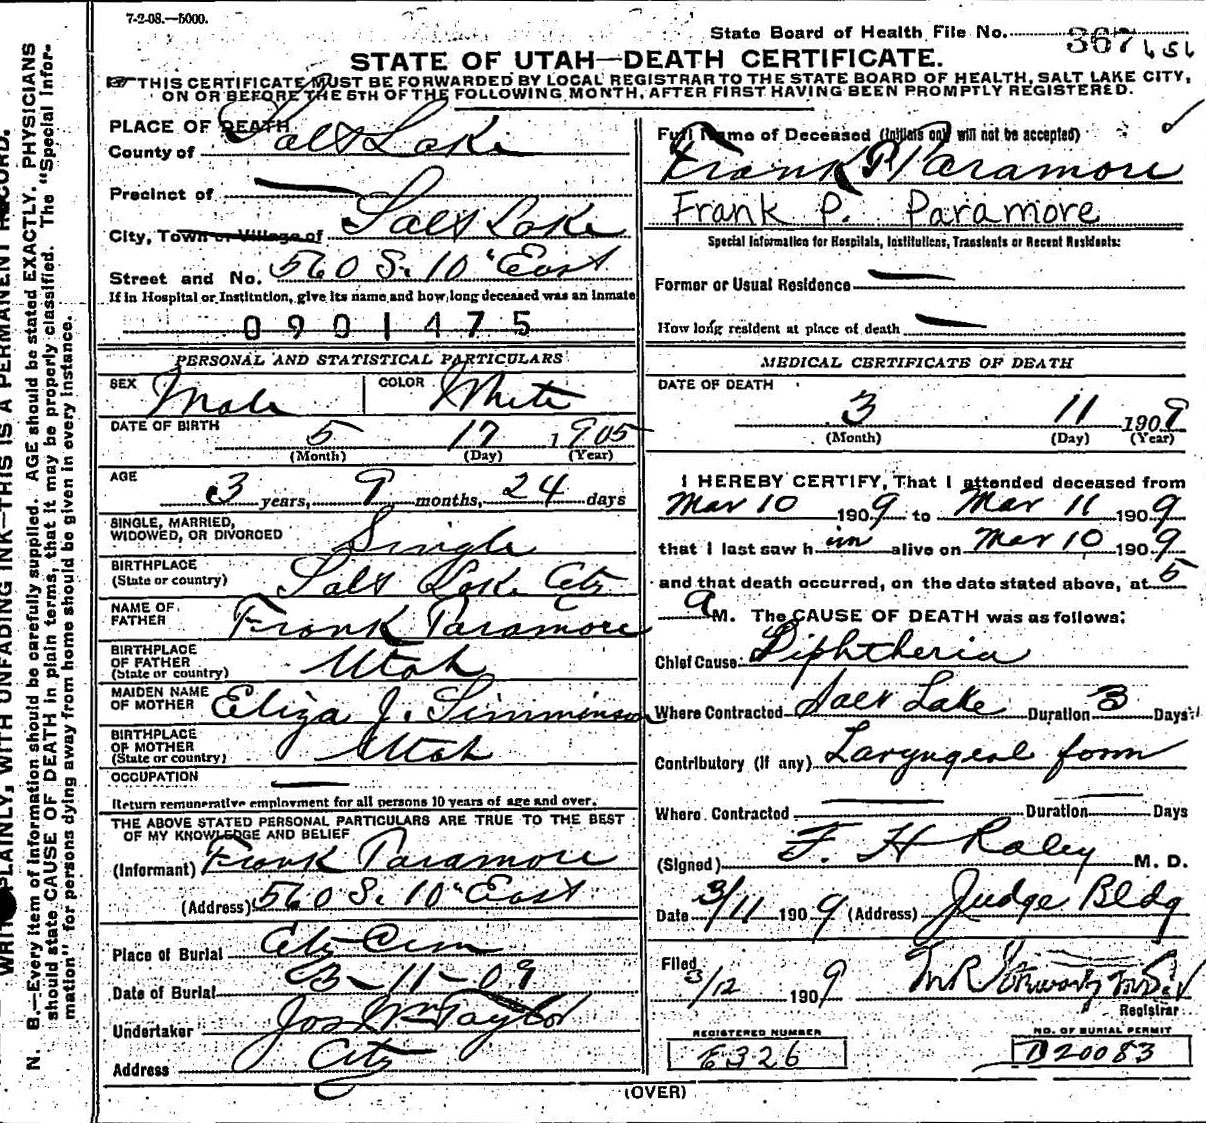 7-2-08.—5000.
State Board of Health File No. 367 454
STATE OF UTAH—DEATH CERTIFICATE.
☞ THIS CERTIFICATE MUST BE FORWARDED BY LOCAL REGISTRAR TO THE STATE BOARD OF HEALTH, SALT LAKE CITY,
ON OR BEFORE THE 5TH OF THE FOLLOWING MONTH, AFTER FIRST HAVING BEEN PROMPTLY REGISTERED.
PLACE OF DEATH
County of Salt Lake
Precinct of —
City, Town or Village of Salt Lake
Street and No. 560 S. 10 East
If in Hospital or Institution, give its name and how long deceased was an inmate
0901475
PERSONAL AND STATISTICAL PARTICULARS
SEX Male COLOR White
DATE OF BIRTH 5 17 1905
(Month) (Day) (Year)
AGE 3 years, 9 months, 24 days
SINGLE, MARRIED,
WIDOWED, OR DIVORCED Single
BIRTHPLACE
(State or country) Salt Lake City
NAME OF
FATHER Frank Paramore
BIRTHPLACE
OF FATHER
(State or country) Utah
MAIDEN NAME
OF MOTHER Eliza J. Simminson
BIRTHPLACE
OF MOTHER
(State or country) Utah
OCCUPATION —
Return remunerative employment for all persons 10 years of age and over.
THE ABOVE STATED PERSONAL PARTICULARS ARE TRUE TO THE BEST
OF MY KNOWLEDGE AND BELIEF
(Informant) Frank Paramore
(Address) 560 S. 10 East
Place of Burial City Cem
Date of Burial 3-11-09
Undertaker Jos Wm Taylor
Address City
Full Name of Deceased (Initials only will not be accepted)
Frank P Paramore
Frank P. Paramore
Special Information for Hospitals, Institutions, Transients or Recent Residents:
Former or Usual Residence —
How long resident at place of death —
MEDICAL CERTIFICATE OF DEATH
DATE OF DEATH
3 11 1909
(Month) (Day) (Year)
I HEREBY CERTIFY, That I attended deceased from
Mar 10 1909 to Mar 11 1909
that I last saw him alive on Mar 10 1909
and that death occurred, on the date stated above, at 5
a M. The CAUSE OF DEATH was as follows:
Chief Cause Diphtheria
Where Contracted Salt Lake Duration 3 Days
Contributory (if any) Laryngeal form
Where Contracted — Duration — Days
(Signed) F. H. Raley M. D.
Date 3/11 1909 (Address) Judge Bldg
Filed
3/12 1909
Registrar
REGISTERED NUMBER
E326
NO. OF BURIAL PERMIT
D20083
(OVER)
WRITE PLAINLY, WITH UNFADING INK—THIS IS A PERMANENT RECORD.
N. B.—Every item of information should be carefully supplied. AGE should be stated EXACTLY. PHYSICIANS
should state CAUSE OF DEATH in plain terms, that it may be properly classified. The "Special Infor-
mation" for persons dying away from home should be given in every instance.